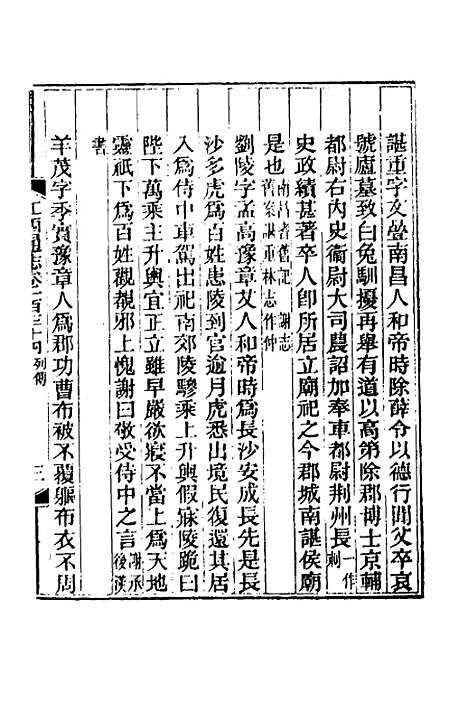 諶重字文疊南昌人和帝時除薛令以德行聞父卒哀
號廬墓致白兔馴擾再舉有道以高第除郡博士京輔
都尉右內史衞尉大司農詔加奉車都尉荆州長一作刺
史政績甚著卒人卽所居立廟祀之今郡城南諶侯廟
是也南昌耆舊記 謝志 舊案諶重林志作仲
劉陵字孟高豫章艾人和帝時爲長沙安成長先是長
沙多虎爲百姓患陵到官逾月虎悉出境民復還其居
入爲侍中車駕出祀南郊陵驂乘上升輿假寐陵跪曰
陛下萬乘主升輿宜正立雖早嚴欲寢不當上爲天地
靈祇下爲百姓觀覩邪上愧謝曰敬受侍中之言謝承後漢
書
羊茂字季寶豫章人爲郡功曹布被不覆軀布衣不周
江西通志卷一百三十四 列傳 三